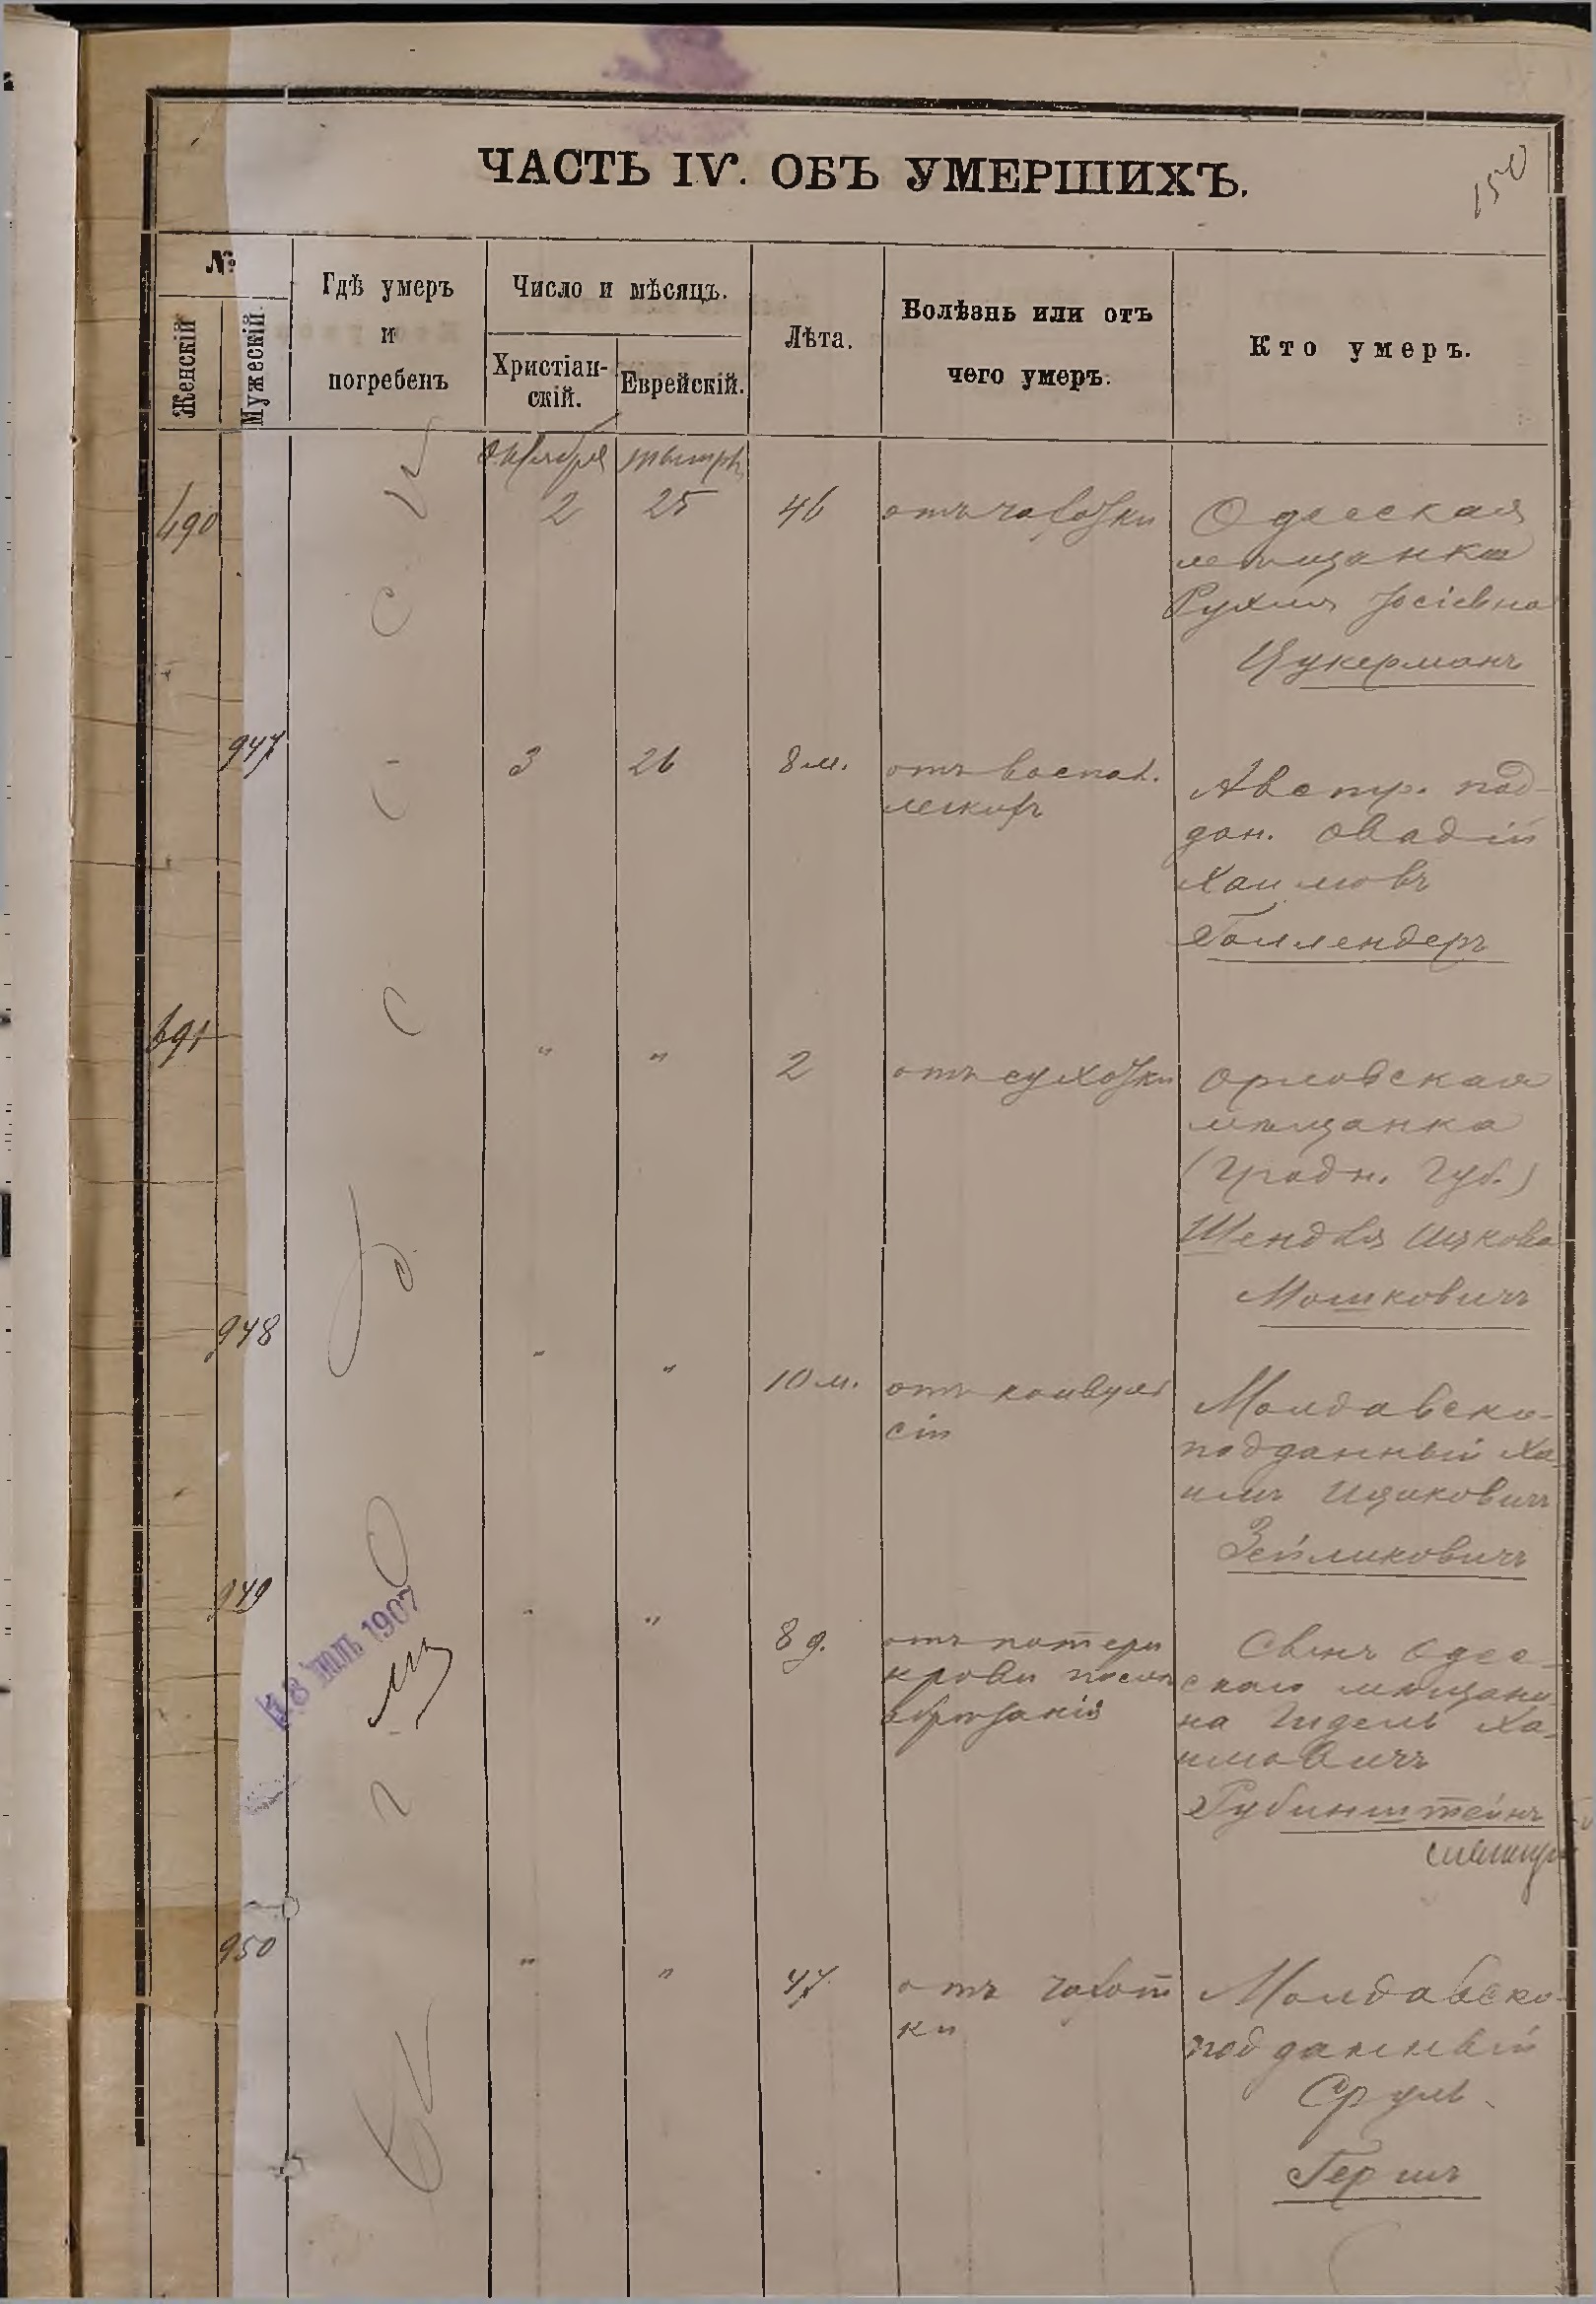 ЧАСТЬ IV. ОБЪ УМЕРШИХЪ.
150
№
Женскій
Мужескій.
Гдѣ умеръ
и
погребенъ
Число и мѣсяцъ.
Христіан-
скій.
Еврейскій.
Лѣта.
Болѣзнь или отъ
чего умеръ.
Кто умеръ.
Октября
2 25 46 отъ чахотки Одесская
мѣщанка
Рухля Іосіевна
Цукерманъ
947 3 26 8 м. отъ воспал. Австр. под-
легкихъ дан. Овадій
Хаимовъ
Голлендеръ
691 " " 2 отъ сухотки Орловская
мѣщанка
(Гродн. Губ.)
Шендля Ицкова
Мошковичъ
948 " " 10 м. отъ конвуль Молдавско-
сій подданный Ха-
имъ Ицковичъ
Зейликовичъ
949 " " 8 д. отъ потери Сынъ Одес-
крови послѣ скаго мѣщани-
обрѣзанія на Гидель Ха-
имовичъ
Рубинштейнъ
18 1907
950 " " 47 отъ чахот Молдавско-
ки подданный
Сруль
Гершъ